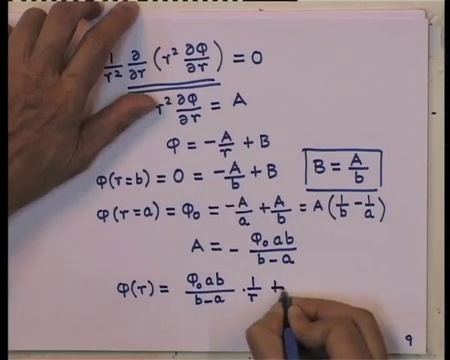 1/r² ∂/∂r (r² ∂φ/∂r) = 0
r² ∂φ/∂r = A
φ = -A/r + B
φ(r=b) = 0 = -A/b + B
B = A/b
φ(r=a) = φ₀ = -A/a + A/b = A(1/b - 1/a)
A = - φ₀ab/b-a
φ(r) = φ₀ab/b-a · 1/r +
9